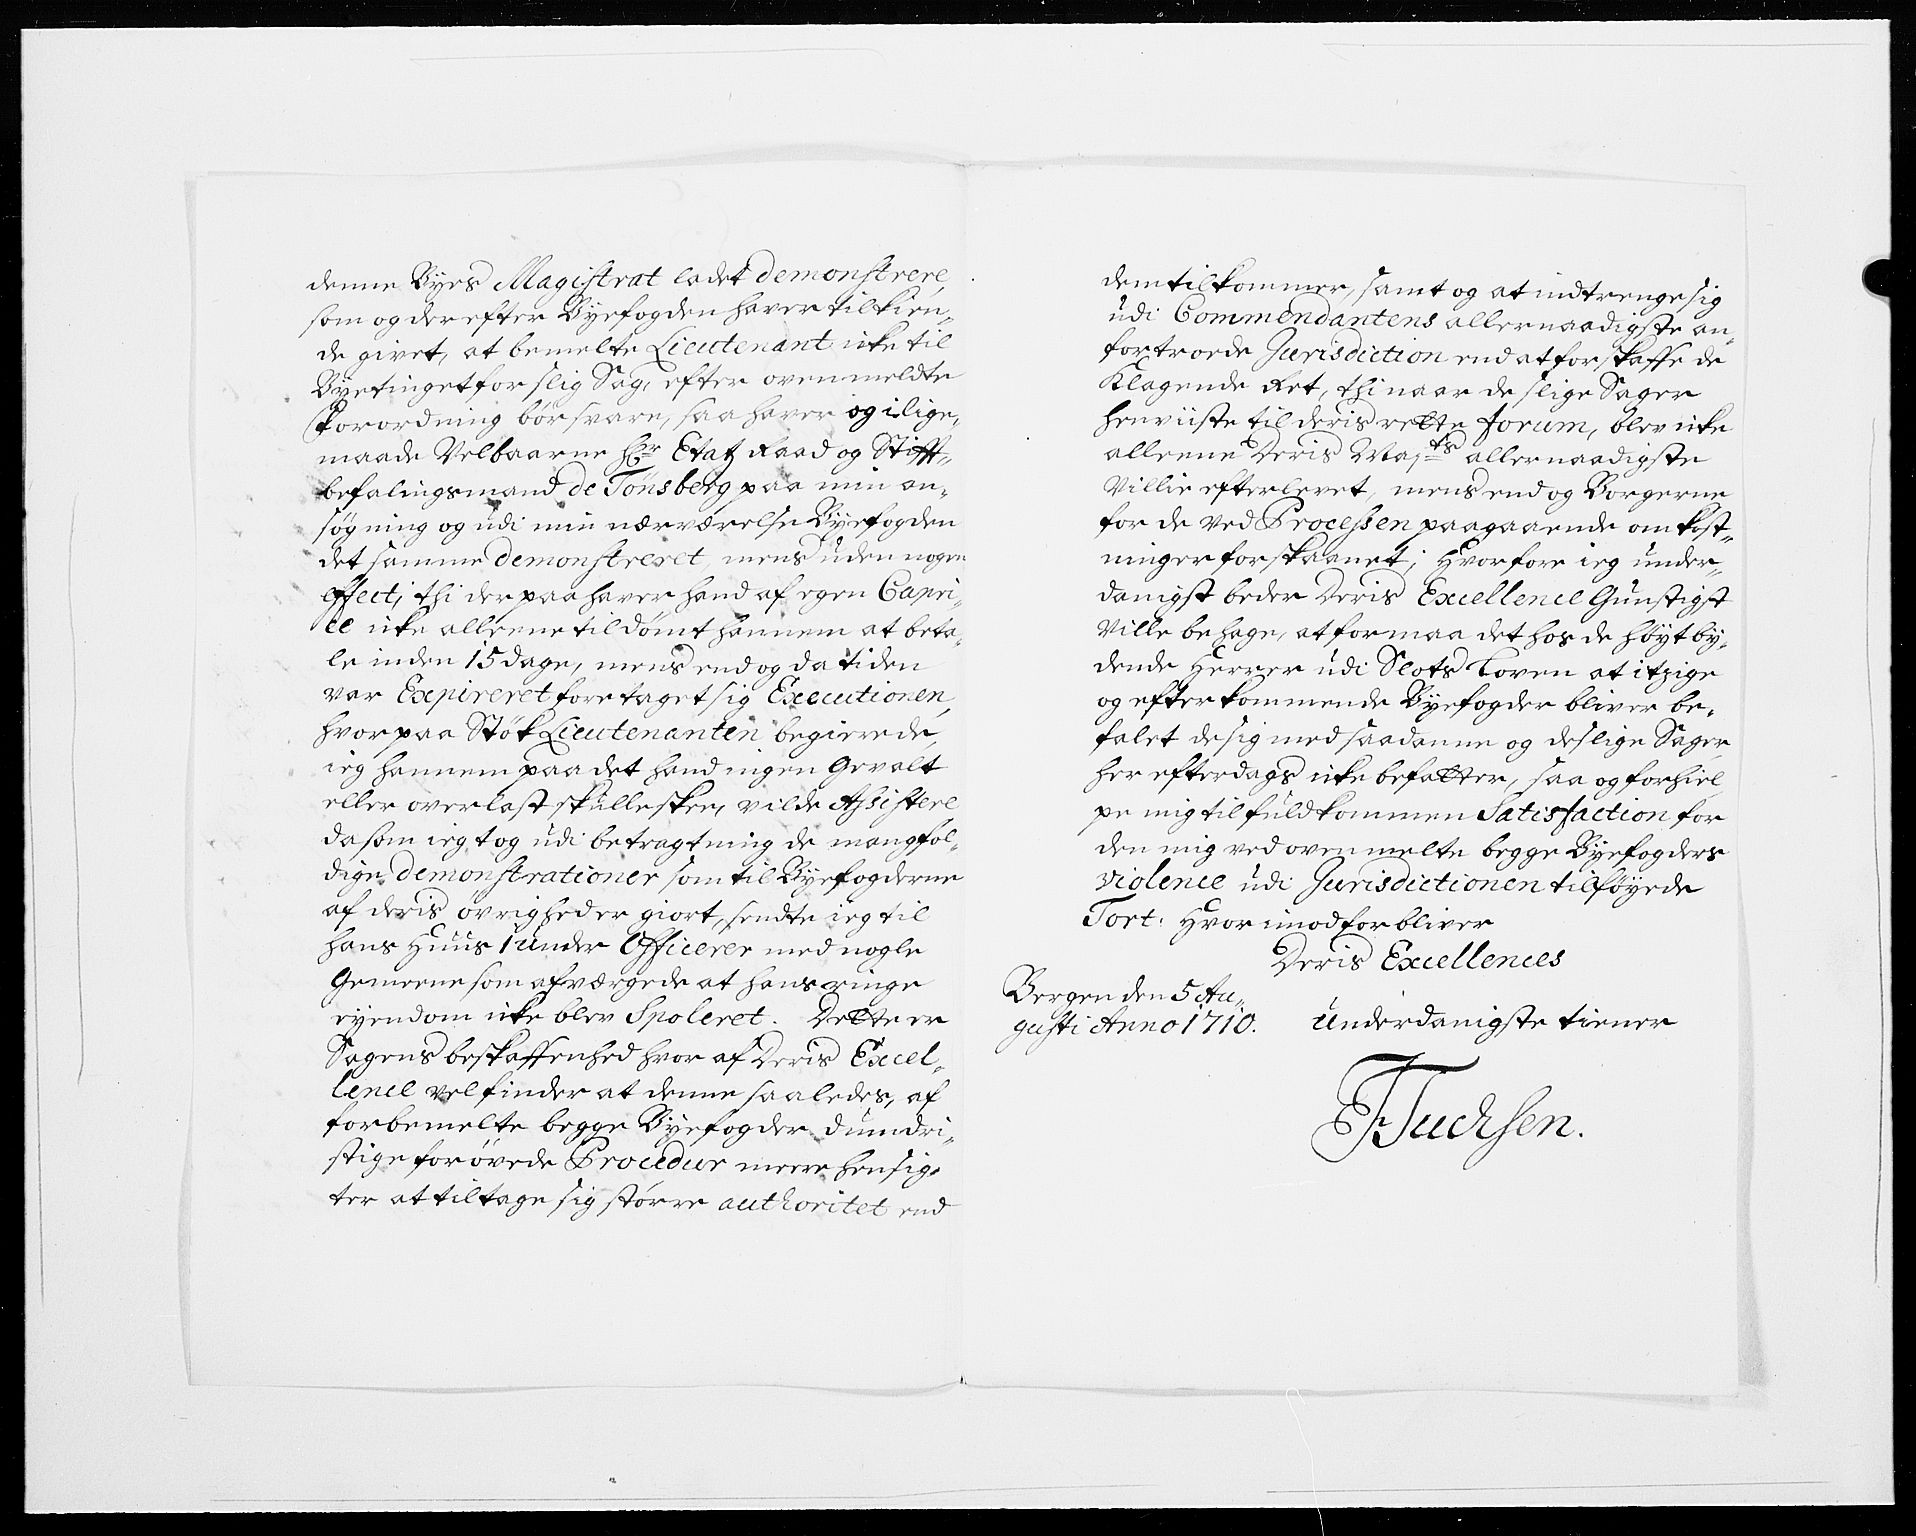 denne Byes Magistrat ladet demonstrere,
som og derefter Byefogden haver tilkien-
de givet, at bemelte Lieutenant icke til
Byetinget for slig Sag, efter ovenmeldte
Forordning bør svare, saa haver og i lige-
maade Velbaarne Hr Etatz Raad og Stifft-
befalingsmand de Tønsberg paa min an-
søgning og udi min nærværelse Byefogden
det samme demonstreret, mens uden nogen
effect; thi der paa haver hand af egen Capri-
ce icke alleene tildømt hannem at beta-
le inden 15 dage, mens end og da tiden
var Expireret foretaget sig Executionen,
hvorpaa Støk Lieutenanten begierede,
ieg hannem paa det hand ingen Gevalt
eller overlast skulle skee, vilde Assistere
da som ieg tog udi betragtning de mangfol-
dige demonstrationer som til Byefogderne
af deris øvrigheder giort, sendte ieg til
hans Huus 1 under Officerer med nogle
Gemeene som afværgede at hans ringe
eyendom icke blev Spoleret. Dette er
Sagens beskaffenhed hvor af Deris Excel-
lence vel finder at denne saaledes, af
forbemelte begge Byefogder dumdri-
stige forøvede Procedur meere hensig-
ter at tiltage sig større authoritet end
dem tilkommer, samt og at indtrenge sig
udi Commendantens allernaadigste an-
fortroede Jurisdiction end at forskaffe de
Klagende Ret, thi naar de slige Sager
henviiste til deris rette forum, blev icke
alleene Deris Majts allernaadigste
Villie efterlevet, mens end og Borgerne
for de ved Processen paagaaende omkost-
ninger forskaanet; Hvorfore ieg under-
danigst beder Deris Excellence Gunstigst
Ville behage, at formaa det hos de høyt by-
dende Herrer udi Slots Loven at itzige
og efterkommende Byefogder bliver be-
falet de sig med saadanne og deslige Sager
her efterdags icke befatter, saa og forhiel
pe mig til fuldkommen Satisfaction for
den mig ved ovenmelte begge Byefogders
violence udi Jurisdictionen tilføyede
Tort. Hvorimod forbliver
Deris Excellences
Bergen den 5 Au-
gusti Anno 1710.
underdanigste tiener